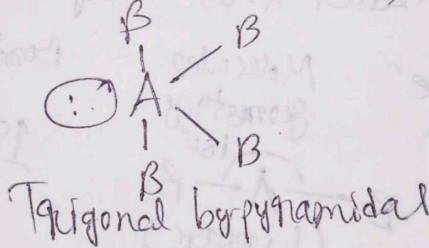 B
B
: A
B
B
Trigonal bypyramidal